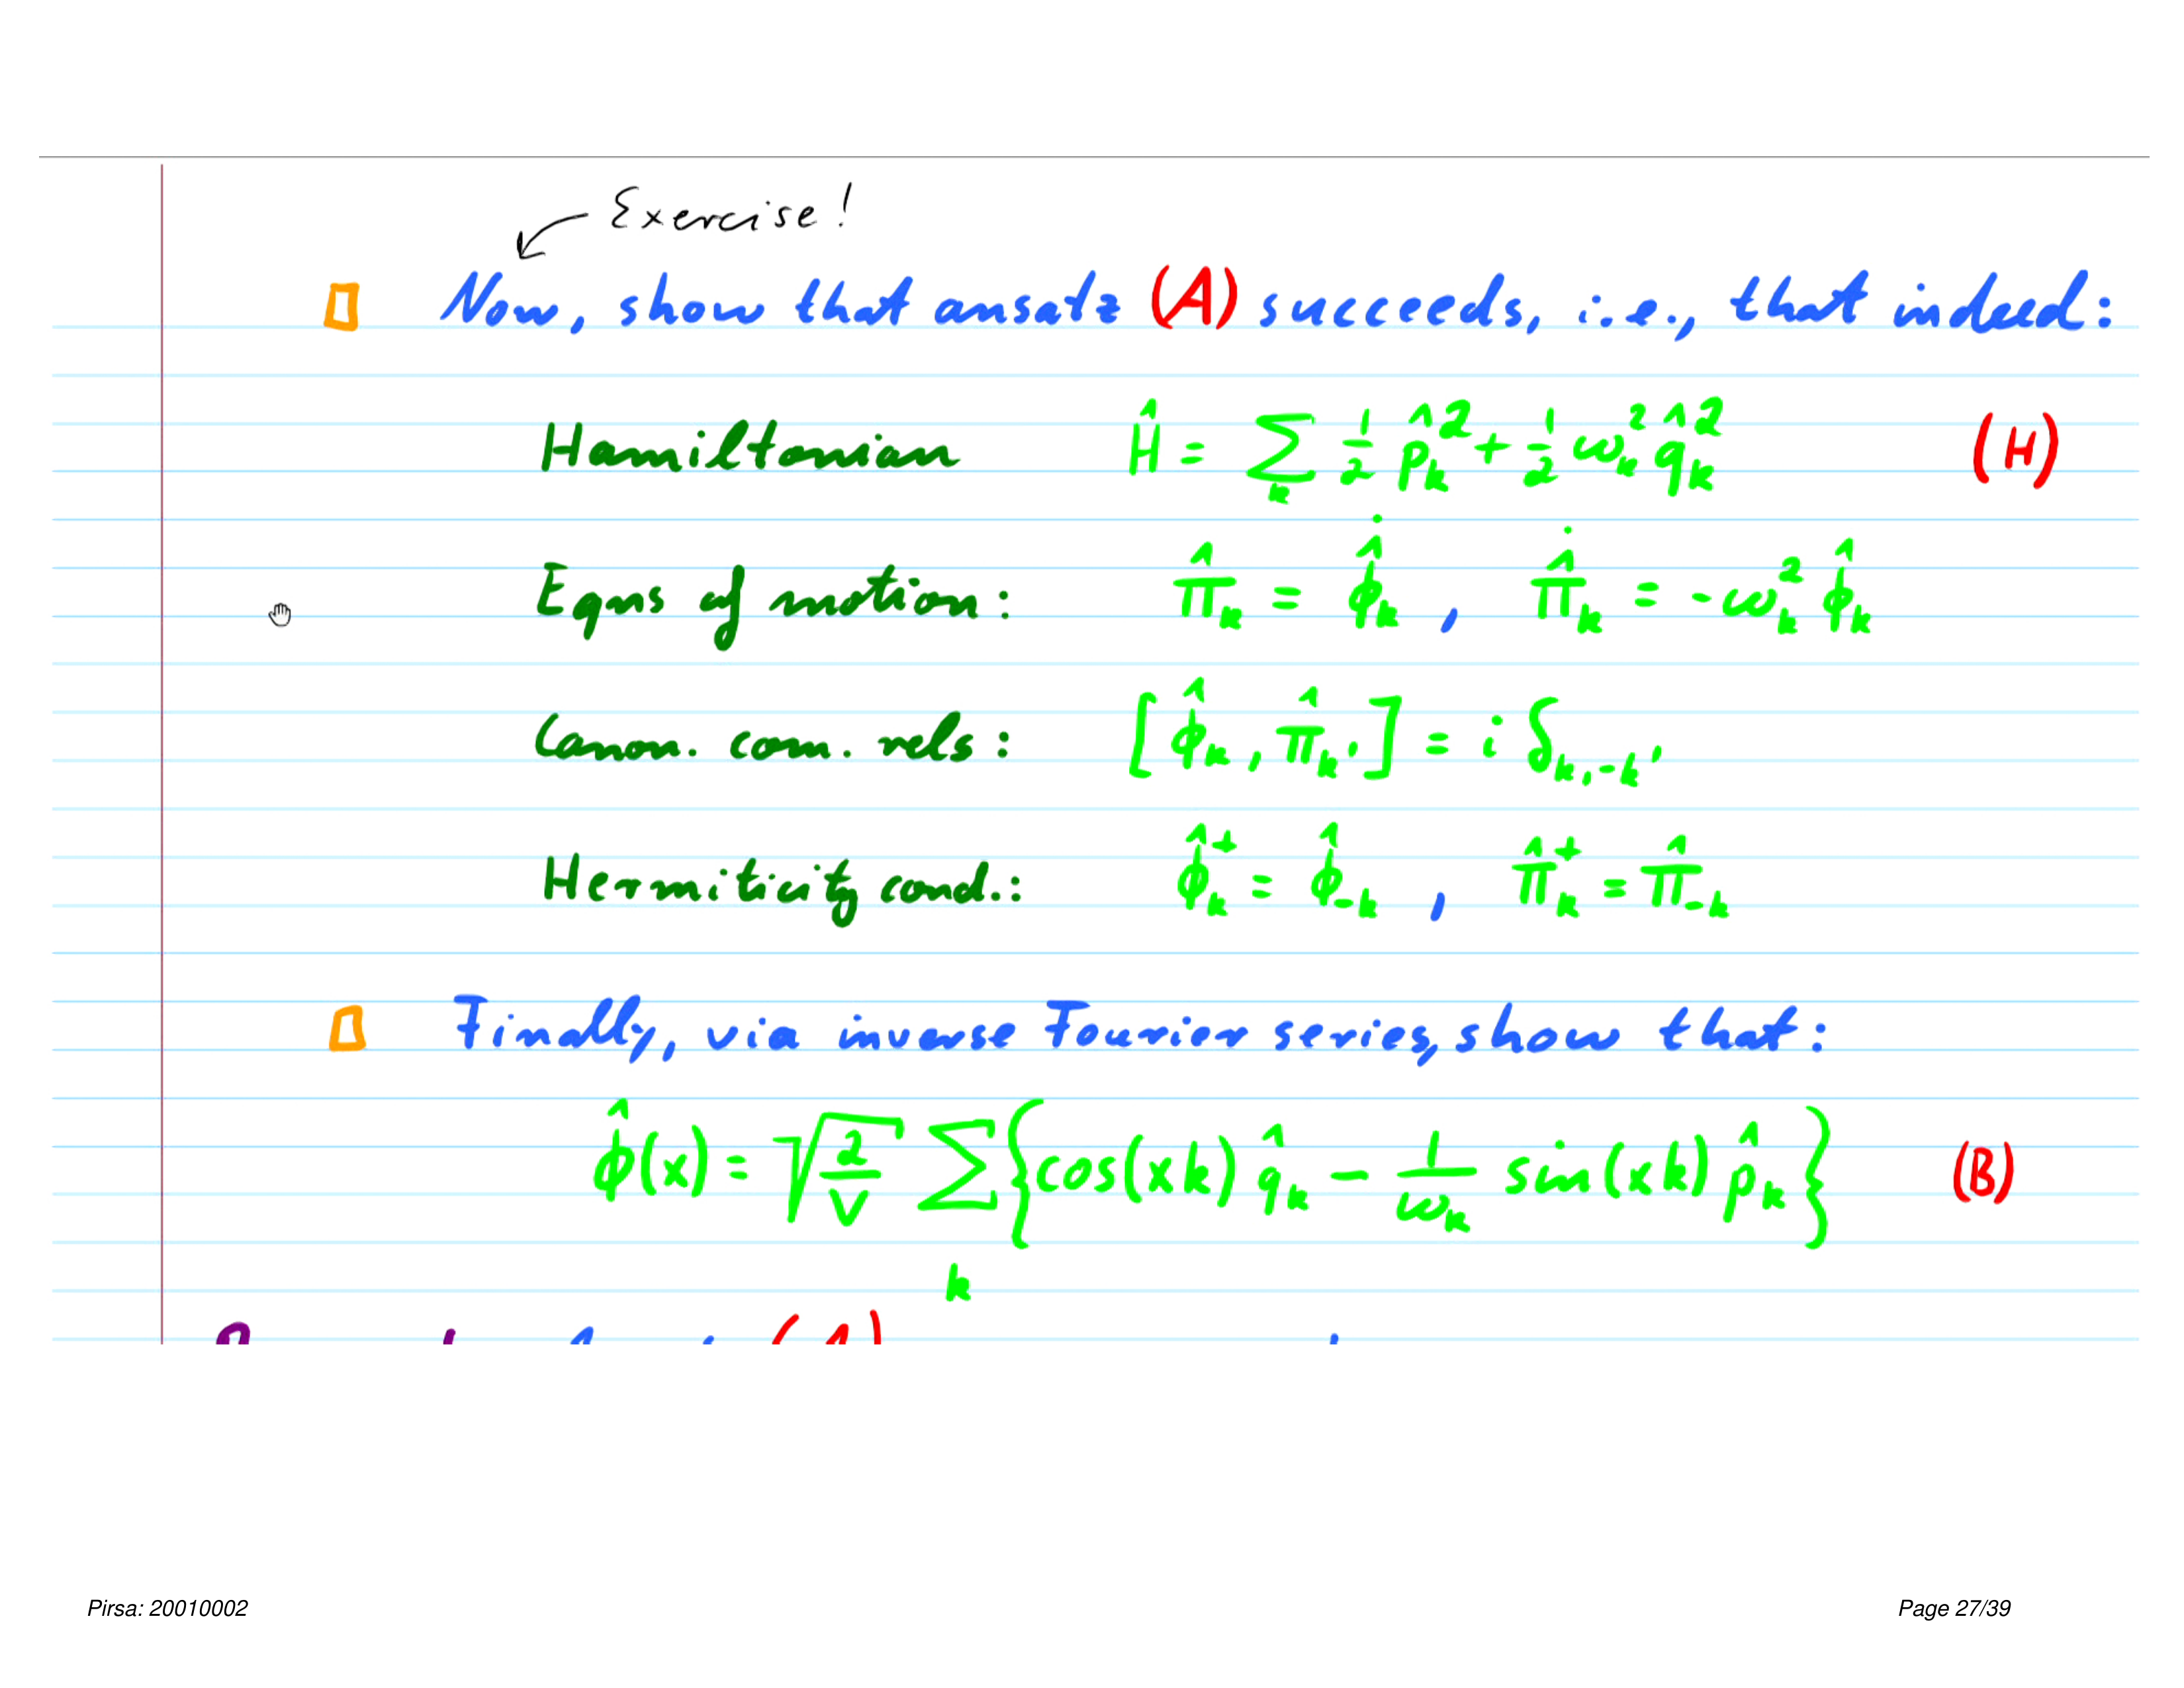 Exercise!
Now, show that ansatz (A) succeeds, i.e., that indeed:
Hamiltonian Ĥ = ∑ₖ ½ p̂ₖ² + ½ ωₖ² q̂ₖ² (H)
Eqns of motion: π̂ₖ = φ̂̇ₖ , π̂̇ₖ = -ωₖ² φ̂ₖ
Canon. com. rels: [φ̂ₖ, π̂ₖ'] = i δₖ,₋ₖ'
Hermiticity cond.: φ̂ₖ⁺ = φ̂₋ₖ , π̂ₖ⁺ = π̂₋ₖ
Finally, via inverse Fourier series, show that:
φ̂(x) = √(2/V) ∑ₖ {cos(xk) q̂ₖ - 1/ωₖ sin(xk) p̂ₖ} (B)
Pirsa: 20010002 Page 27/39